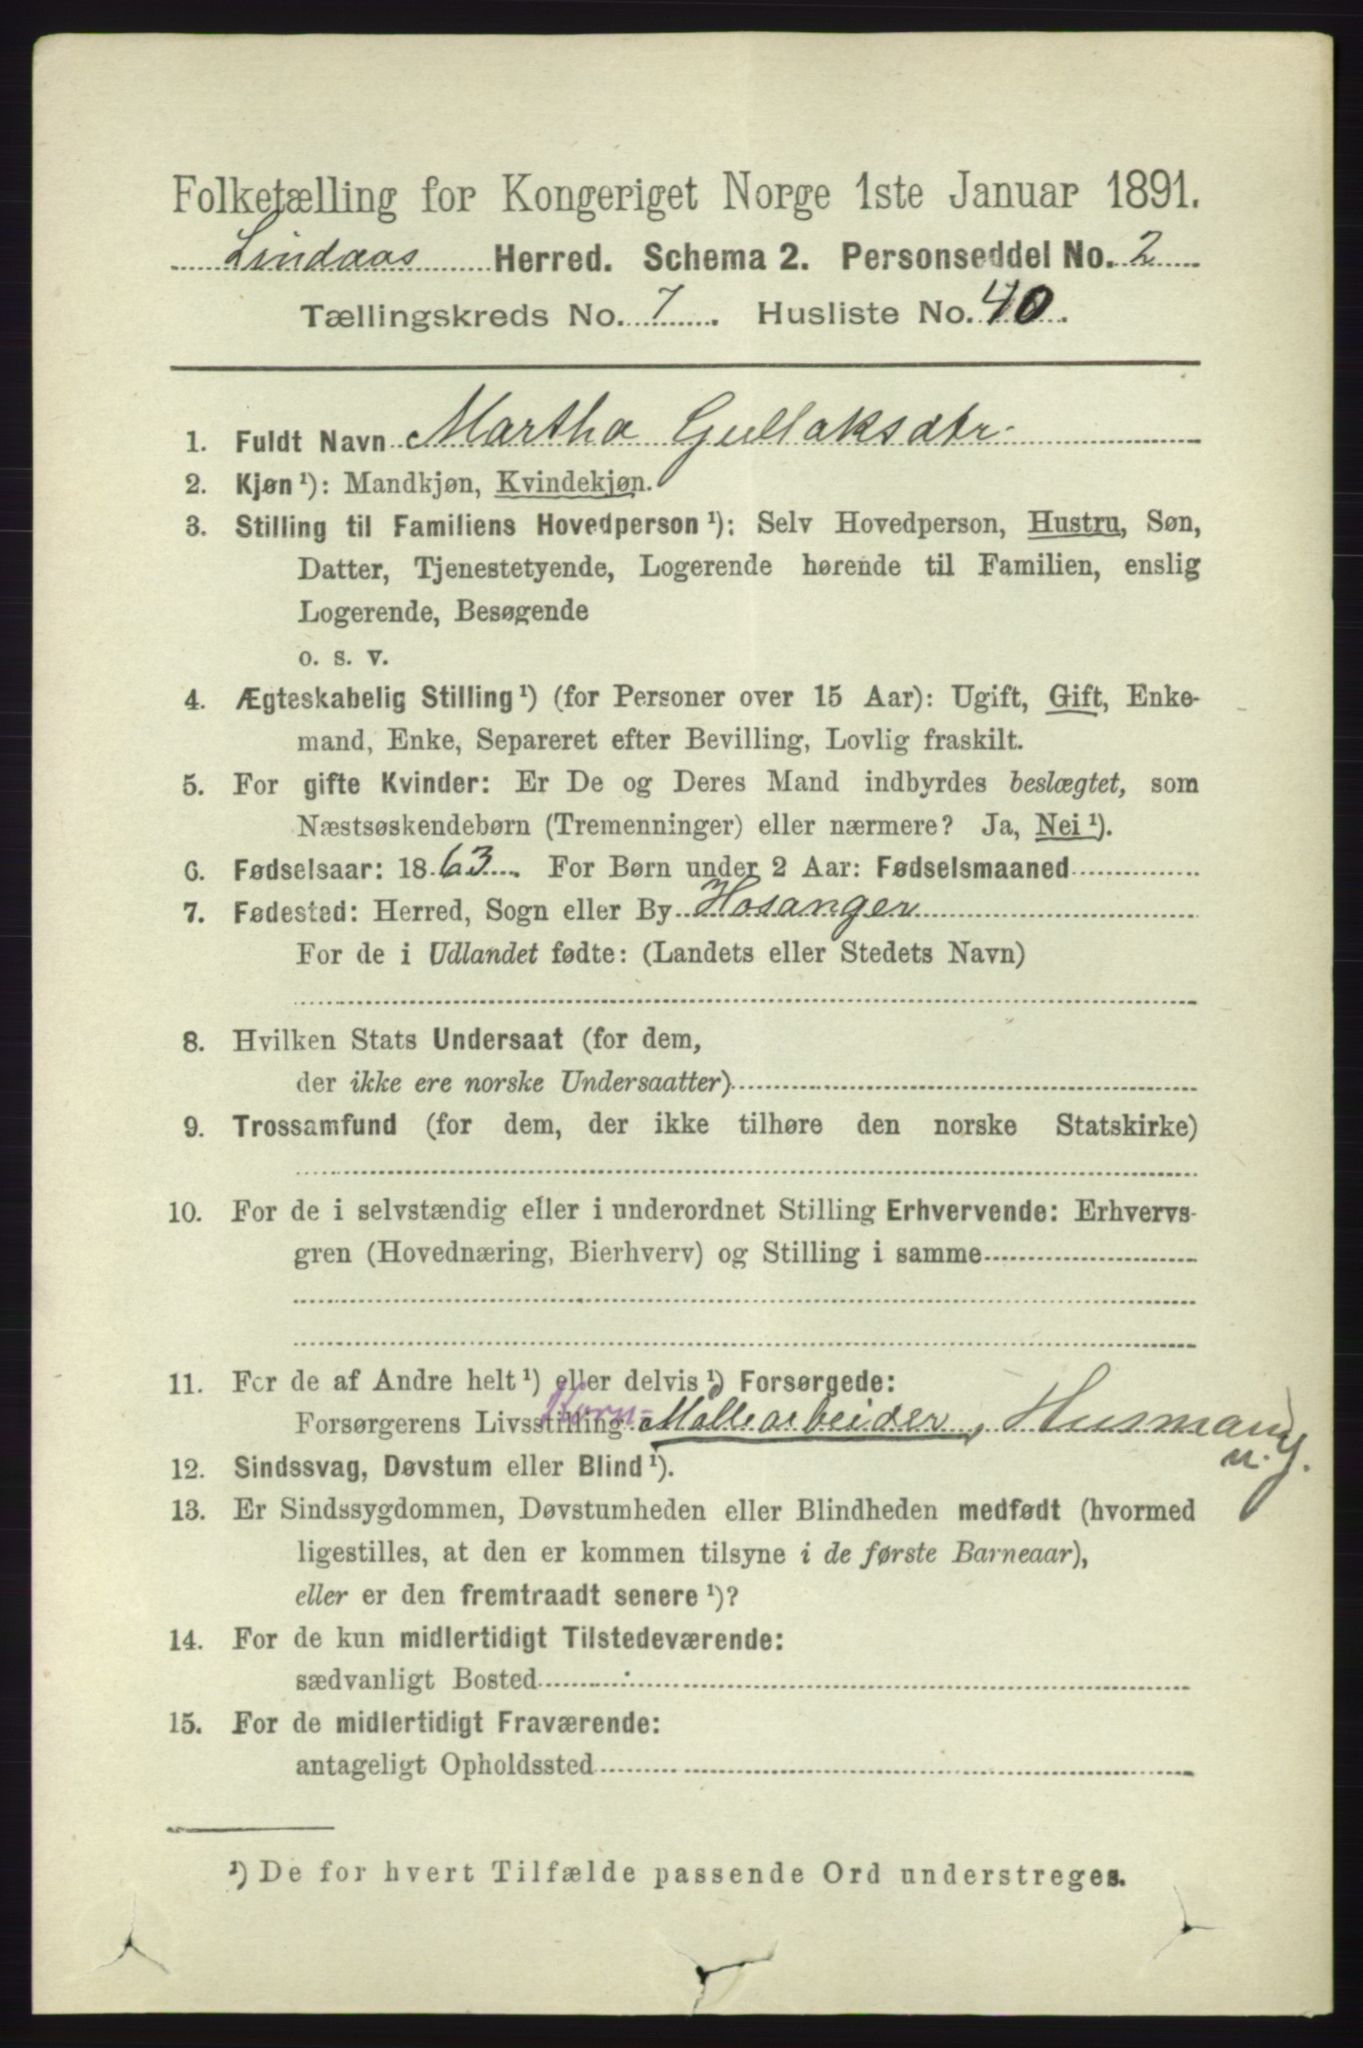 Folketælling for Kongeriget Norge 1ste Januar 1891.
Lindaas Herred. Schema 2. Personseddel No. 2
Tællingskreds No. 7. Husliste No. 40.
1. Fuldt Navn Martha Gullaksdtr.
2. Kjøn ¹): Mandkjøn, Kvindekjøn.
3. Stilling til Familiens Hovedperson ¹): Selv Hovedperson, Hustru, Søn,
Datter, Tjenestetyende, Logerende hørende til Familien, enslig
Logerende, Besøgende
o. s. v.
4. Ægteskabelig Stilling ¹) (for Personer over 15 Aar): Ugift, Gift, Enke-
mand, Enke, Separeret efter Bevilling, Lovlig fraskilt.
5. For gifte Kvinder: Er De og Deres Mand indbyrdes beslægtet, som
Næstsøskendebørn (Tremenninger) eller nærmere? Ja, Nei ¹).
6. Fødselsaar: 1863. For Børn under 2 Aar: Fødselsmaaned
7. Fødested: Herred, Sogn eller By Hosanger
For de i Udlandet fødte: (Landets eller Stedets Navn)
8. Hvilken Stats Undersaat (for dem,
der ikke ere norske Undersaatter)
9. Trossamfund (for dem, der ikke tilhøre den norske Statskirke)
10. For de i selvstændig eller i underordnet Stilling Erhvervende: Erhvervs-
gren (Hovednæring, Bierhverv) og Stilling i samme
11. For de af Andre helt ¹) eller delvis ¹) Forsørgede:
Korn-
Forsørgerens Livsstilling Møllearbeider, Husmand
m. J.
12. Sindssvag, Døvstum eller Blind ¹).
13. Er Sindssygdommen, Døvstumheden eller Blindheden medfødt (hvormed
ligestilles, at den er kommen tilsyne i de første Barneaar),
eller er den fremtraadt senere ¹)?
14. For de kun midlertidigt Tilstedeværende:
sædvanligt Bosted
15. For de midlertidigt Fraværende:
antageligt Opholdssted
¹) De for hvert Tilfælde passende Ord understreges.